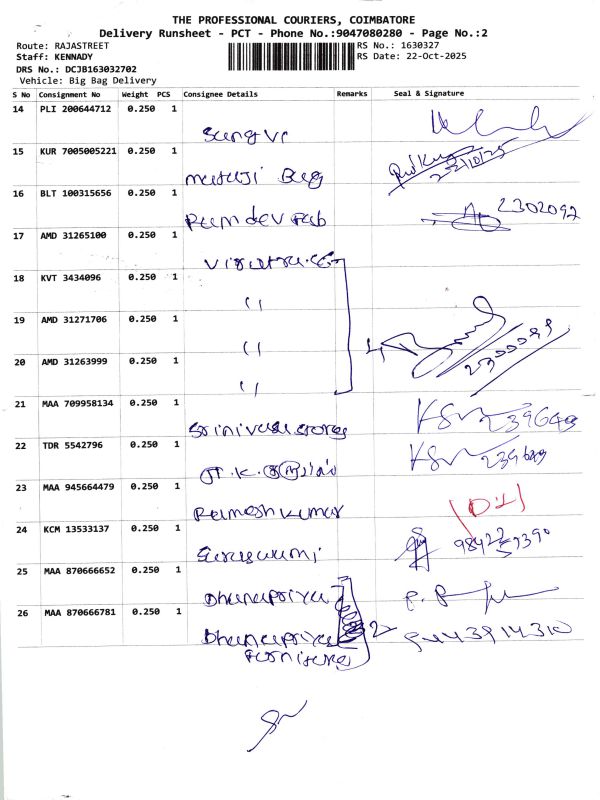 THE PROFESSIONAL COURIERS, COIMBATORE
Delivery Runsheet - PCT - Phone No.:9047080280 - Page No.:2
Route: RAJASTREET RS No.: 1630327
Staff: KENNADY RS Date: 22-Oct-2025
DRS No.: DCJB163032702
Vehicle: Big Bag Delivery
S No Consignment No Weight PCS Consignee Details Remarks Seal & Signature
14 PLI 200644712 0.250 1
Sungvi
15 KUR 7005005221 0.250 1
22/10/25
mataji Bag
16 BLT 100315656 0.250 1
2302092
Ramdev Fab
17 AMD 31265100 0.250 1
18 KVT 3434096 0.250 1
"
19 AMD 31271706 0.250 1
" 4
2300099
20 AMD 31263999 0.250 1
"
21 MAA 709958134 0.250 1
Srinivasa stores 239649
22 TDR 5542796 0.250 1
239649
23 MAA 945664479 0.250 1
Ramesh Kumar
24 KCM 13533137 0.250 1
Saraswami
25 MAA 870666652 0.250 1
Dhanapriya
26 MAA 870666781 0.250 1
Dhanapriya 2 9443914310
Furnitures